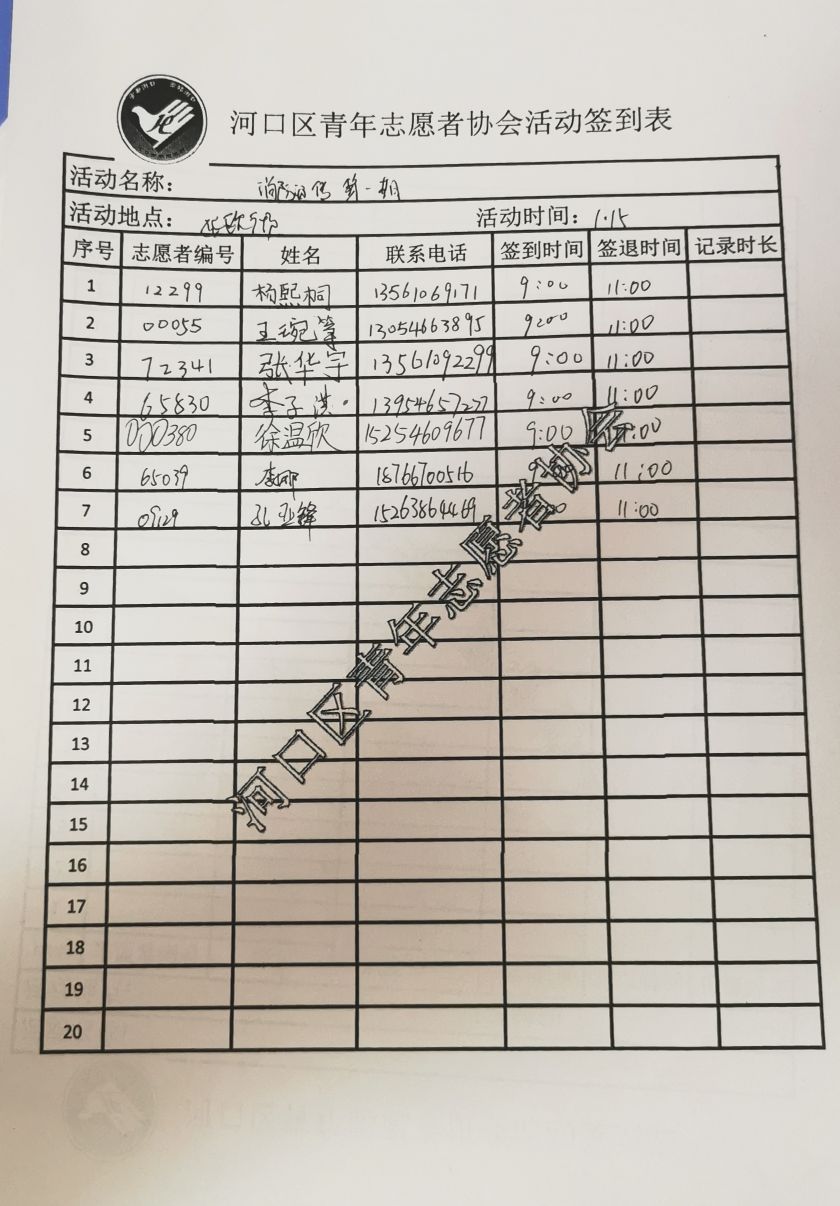 河口区青年志愿者协会活动签到表
活动名称： 消防宣传 第一期
活动地点：
活动时间：1.15
序号 志愿者编号 姓名 联系电话 签到时间 签退时间 记录时长
1 12299 杨熙桐 13561069171 9:00 11:00
2 00055 王琬筝 13054663895 9:00 11:00
3 72341 张华宇 13561092299 9:00 11:00
4 65830 李子洪 13954657277 9:00 11:00
5 000380 徐温欣 15254609677 9:00 11:00
6 65039 李娜 18766700516 11:00
7 09129 孔亚锋 15263864469 11:00
8
9
10
11
12
13
14
15
16
17
18
19
20
河口区青年志愿者协会